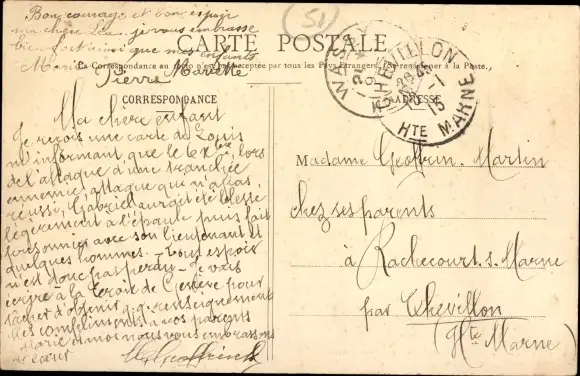 Bon courage et bon espoir
ma chère Léa, je vous embrasse
bien fort ainsi que mes enfants
Marie
Pierre Mariette
(51)
CARTE POSTALE
La Correspondance au recto n'est pas acceptée par tous les Pays Étrangers. Se renseigner à la Poste.
CORRESPONDANCE
ADRESSE
WASSY
CHEVILLON
HTE MARNE
Ma chère enfant
Je reçois une carte de Louis
m'informant, que le 6 Xbre, lors
de l'attaque d'une tranchée
ennemie, attaque qui n'a pas
réussi, Gabriel aurait été blessé
légèrement à l'épaule puis fait
prisonnier avec son lieutenant et
quelques hommes. Tout espoir
n'est donc pas perdu. Je vais
écrire à la Croix de Genève pour
tâcher d'obtenir q.q. renseignements
Mes compliments à vos parents
Marie et moi nous vous embrassons
de cœur
Madame Geoffrin-Martin
chez ses parents
à Rachecourt s. Marne
par Chevillon
(Hte Marne)